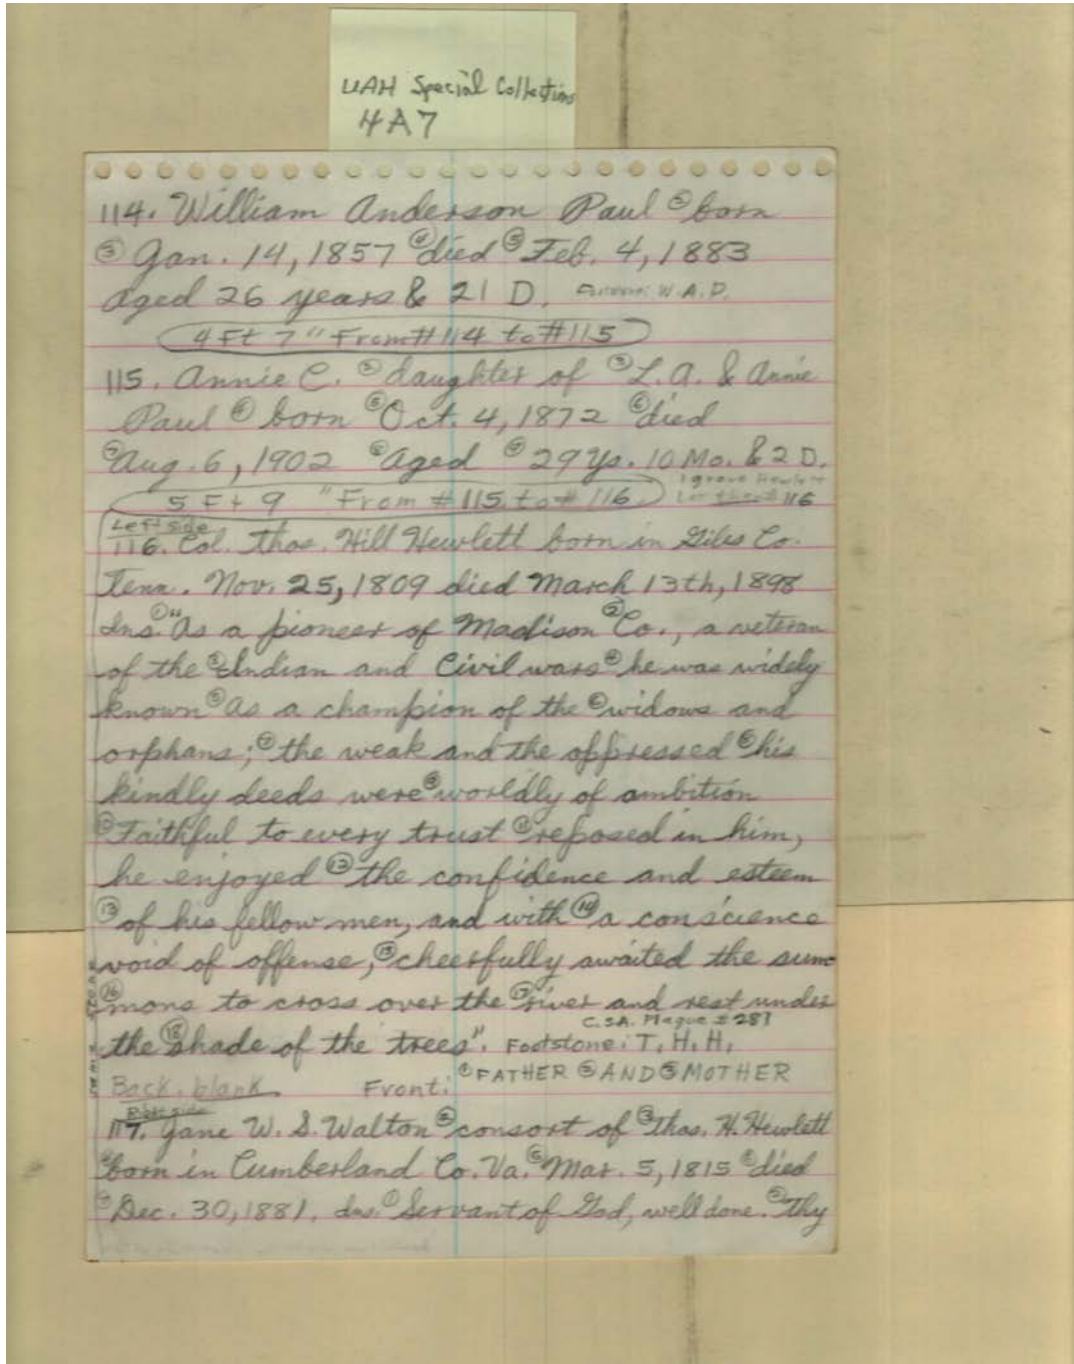 UAH Special Collections
4A7
114. William Anderson Paul ② born
③ Jan. 14, 1857 ④ died ⑤ Feb. 4, 1883
aged 26 years & 21 D. W.A.P.
4 Ft 7" From #114 to #115
115. Annie C. ② daughter of ③ L. A. & Annie
Paul ④ born ⑤ Oct. 4, 1872 ⑥ died
⑦ Aug. 6, 1902 ⑧ Aged ⑨ 29 Ys. 10 Mo. & 2 D.
1 grave Hewlett
5 Ft 9" From #115 to #116 116
Left side
116. Col. Thos. Hill Hewlett born in Giles Co.
Tenn. Nov. 25, 1809 died March 13th, 1898
Ins. ① "As a pioneer of Madison ② Co., a veteran
of the ③ Indian and Civil wars ④ he was widely
known ⑤ as a champion of the ⑥ widows and
orphans; ⑦ the weak and the oppressed ⑧ his
kindly deeds were ⑨ worldly of ambition
⑩ Faithful to every trust ⑪ reposed in him,
he enjoyed ⑫ the confidence and esteem
⑬ of his fellow men, and with ⑭ a conscience
void of offense, ⑮ cheerfully awaited the sum
⑯ mons to cross over the ⑰ river and rest under
C.S.A. Plaque #287
the ⑱ shade of the trees". Footstone: T. H. H.
Back. blank Front: ① FATHER ② AND ③ MOTHER
Right side
117. Jane W. S. Walton ② consort of ③ Thos. H. Hewlett
④ born in Cumberland Co. Va. ⑤ Mar. 5, 1815 ⑥ died
⑦ Dec. 30, 1881. Ins. ① Servant of God, well done. ② Thy